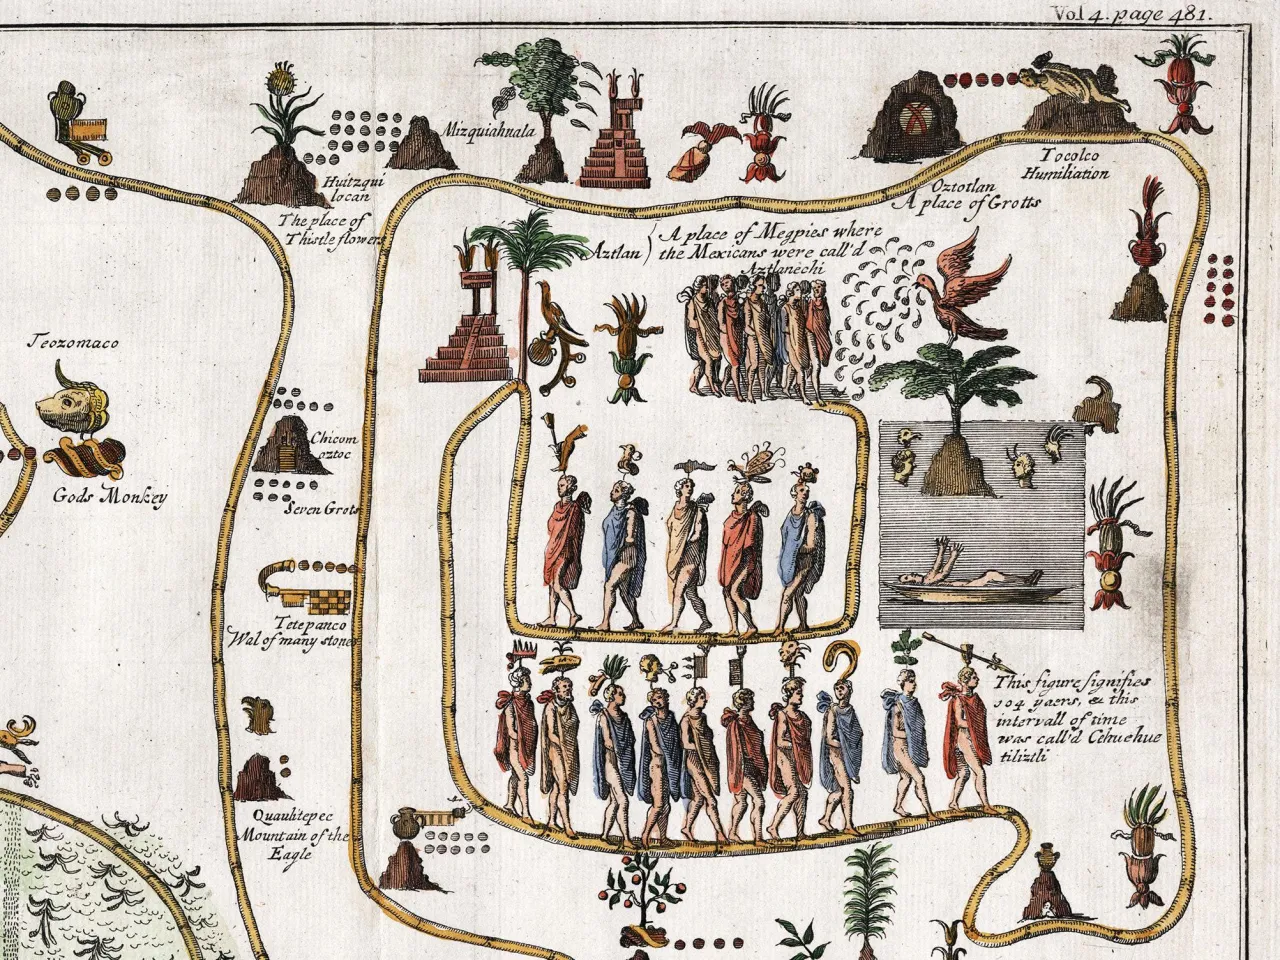 Vol 4. page 481.
Mizquiahuala
Huitzqui
locan
The place of
Thistle flowers
Tocolco
Humiliation
Oztotlan
A place of Grotts
Aztlan
A place of Megpies where
the Mexicans were call'd
Aztlanechi
Teozomaco
Gods Monkey
Chicom
oztoc
Seven Grots
Tetepanco
Wal of many stones
This figure signifies
104 yaers, & this
intervall of time
was call'd Cehuehue
tiliztli
Quaulitepec
Mountain of the
Eagle